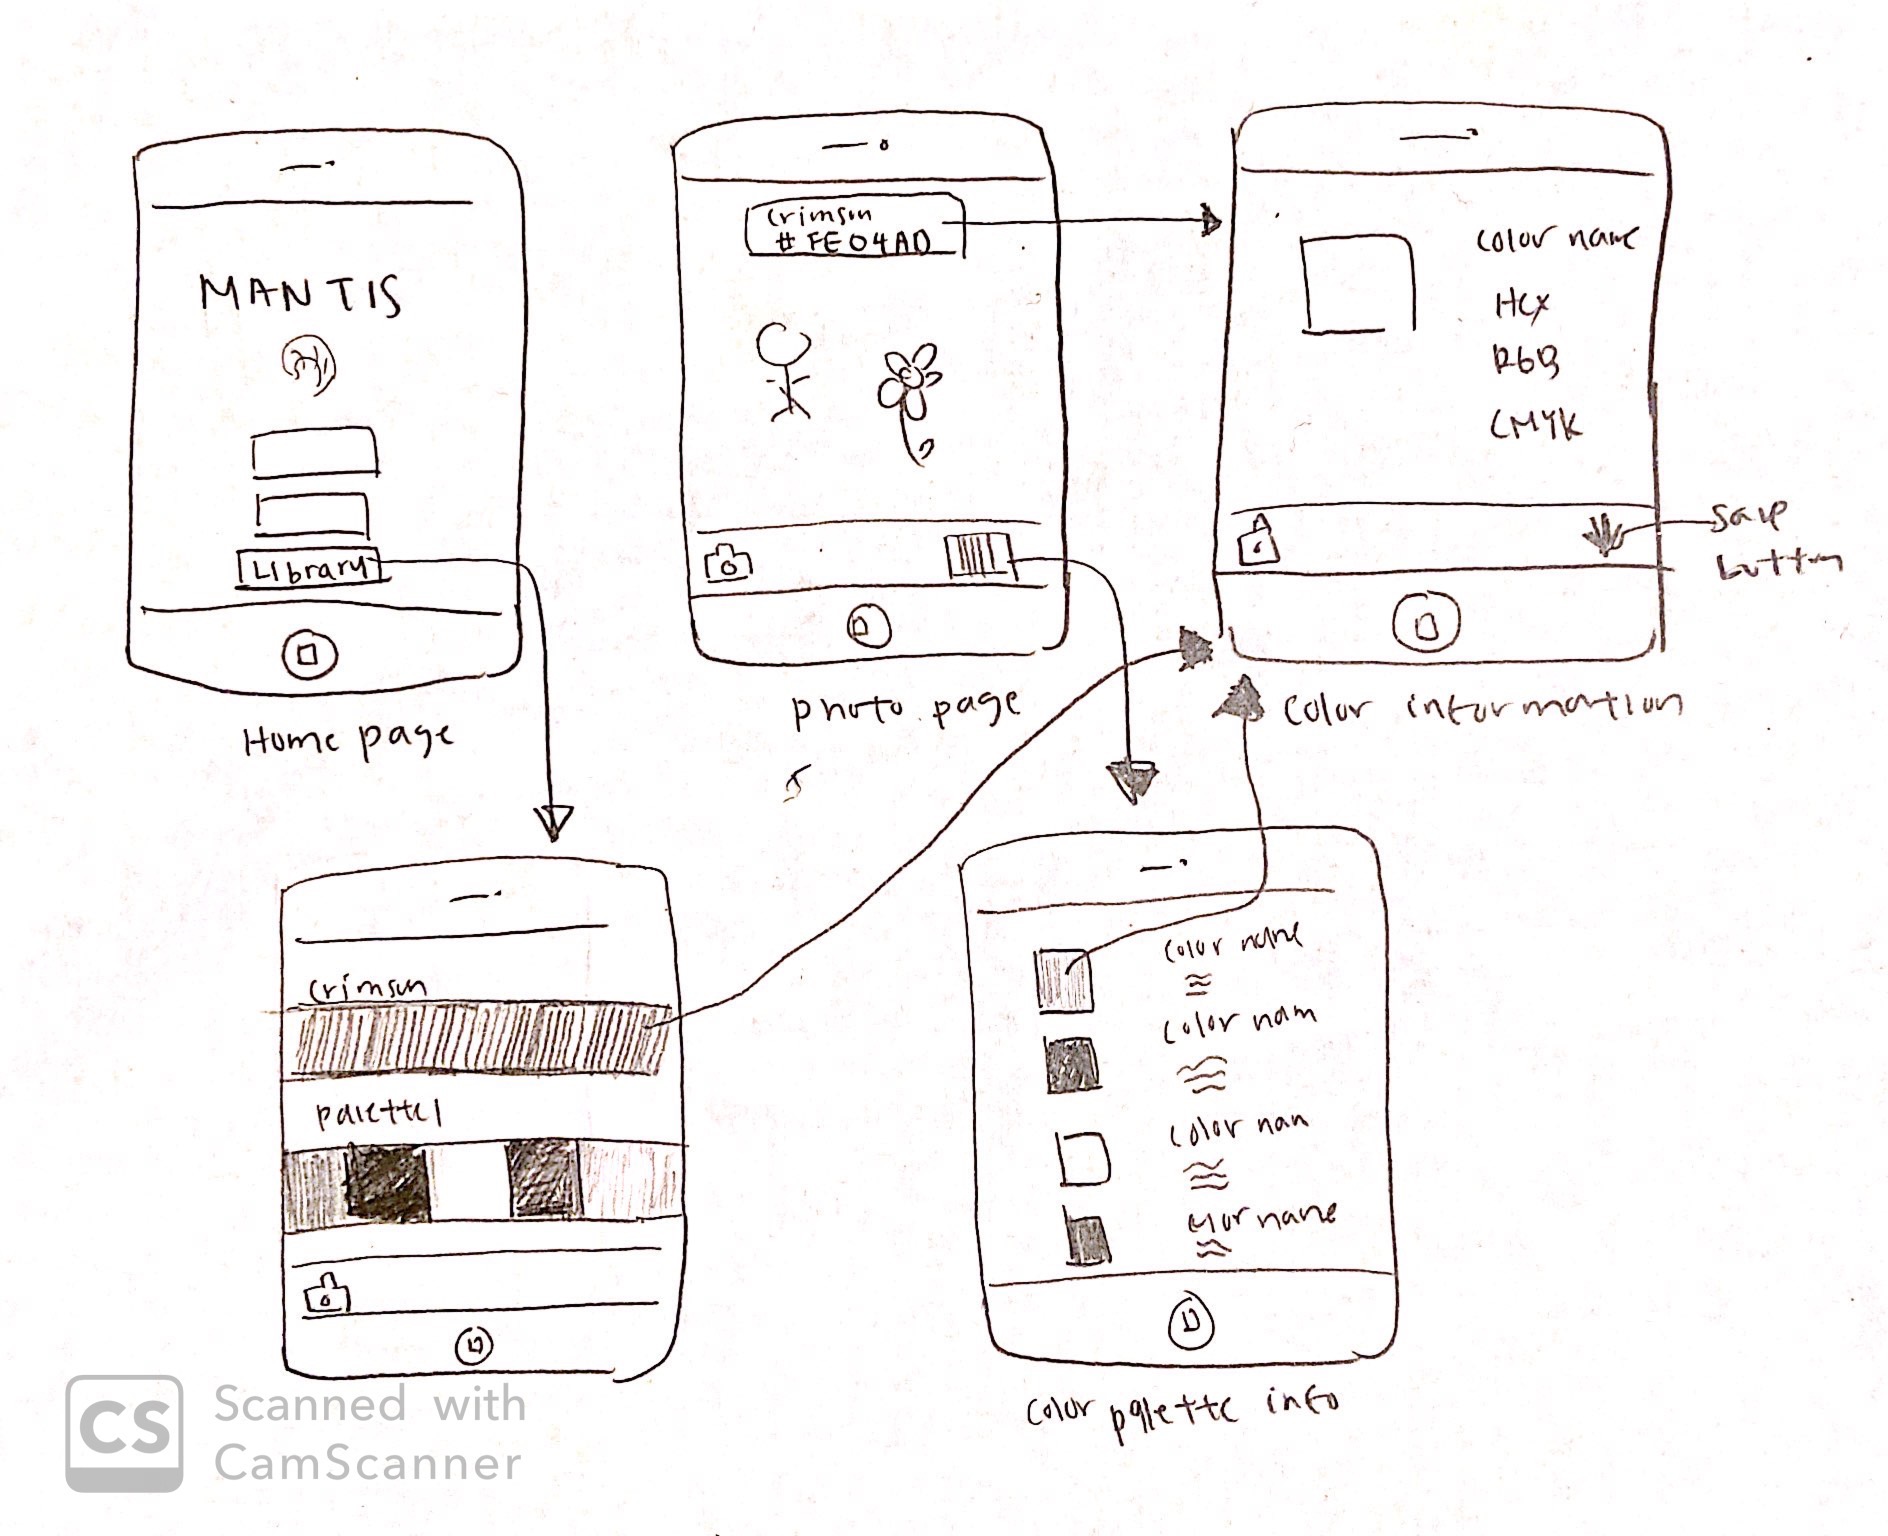 MANTIS
Library
Home page
crimson
# FE04AD
photo page
color name
Hex
RGB
CMYK
save
button
color information
crimson
palette1
color name
color nam
color nan
color name
color palette info
CS
Scanned with
CamScanner